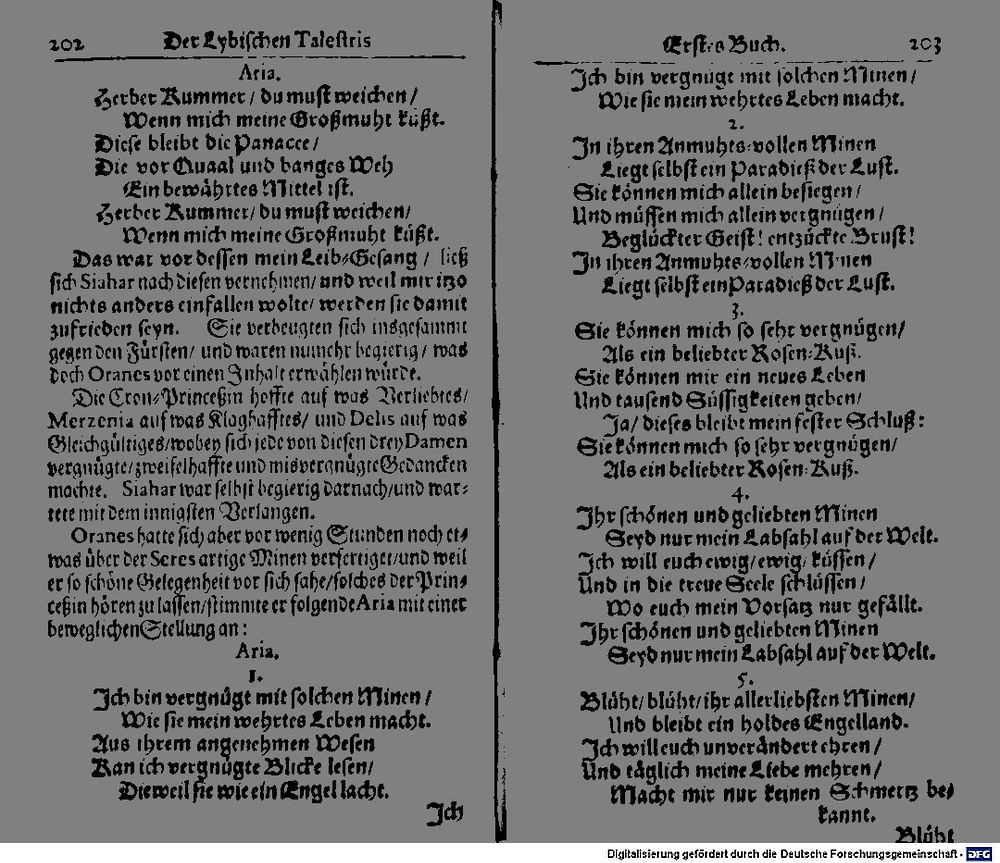 202 Der Lybischen Talestris
Aria.
Herber Kummer / du must weichen /
Wenn mich meine Großmuht küßt.
Diese bleibt die Panacee /
Die vor Quaal und banges Weh
Ein bewährtes Mittel ist.
Herber Kummer / du must weichen /
Wenn mich meine Großmuht küßt.
Das war vor dessen mein Leib-Gesang / ließ
sich Siahar nach diesen vernehmen / und weil mir itzo
nichts anders einfallen wolte / werden sie damit
zufrieden seyn. Sie verbeugten sich insgesammt
gegen den Fürsten / und waren numehr begierig / was
doch Oranes vor einen Inhalt erwählen würde.
Die Cron-Princeßin hoffte auf was Verliebtes /
Merzenia auf was Klaghafftes / und Delis auf was
Gleichgültiges / wobey sich jede von diesen drey Damen
vergnügte / zweifelhaffte und misvergnügte Gedancken
machte. Siahar war selbst begierig darnach / und war-
tete mit dem innigsten Verlangen.
Oranes hatte sich aber vor wenig Stunden noch et-
was über der Seres artige Minen verfertiget / und weil
er so schöne Gelegenheit vor sich sahe / solches der Prin-
ceßin hören zu lassen / stimmte er folgende Aria mit einer
beweglichen Stellung an :
Aria.
1.
Ich bin vergnügt mit solchen Minen /
Wie sie mein wehrtes Leben macht.
Aus ihrem angenehmen Wesen
Kan ich vergnügte Blicke lesen /
Dieweil sie wie ein Engel lacht.
Ich
Erstes Buch. 203
Ich bin vergnügt mit solchen Minen /
Wie sie mein wehrtes Leben macht.
2.
In ihren Anmuhts-vollen Minen
Liegt selbst ein Paradieß der Lust.
Sie können mich allein besiegen /
Und müssen mich allein vergnügen /
Beglückter Geist ! entzückte Brust !
In ihren Anmuhts-vollen Minen
Liegt selbst ein Paradieß der Lust.
3.
Sie können mich so sehr vergnügen /
Als ein beliebter Rosen-Kuß.
Sie können mir ein neues Leben
Und tausend Süssigkeiten geben /
Ja / dieses bleibt mein fester Schluß :
Sie können mich so sehr vergnügen /
Als ein beliebter Rosen-Kuß.
4.
Ihr schönen und geliebten Minen
Seyd nur mein Labsahl auf der Welt.
Ich will euch ewig / ewig / küssen /
Und in die treue Seele schlüssen /
Wo euch mein Vorsatz nur gefällt.
Ihr schönen und geliebten Minen
Seyd nur mein Labsahl auf der Welt.
5.
Blüht / blüht / ihr allerliebsten Minen /
Und bleibt ein holdes Engelland.
Ich will euch unverändert ehren /
Und täglich meine Liebe mehren /
Macht mir nur keinen Schmertz be-
kannt.
Blüht
Digitalisierung gefördert durch die Deutsche Forschungsgemeinschaft - DFG